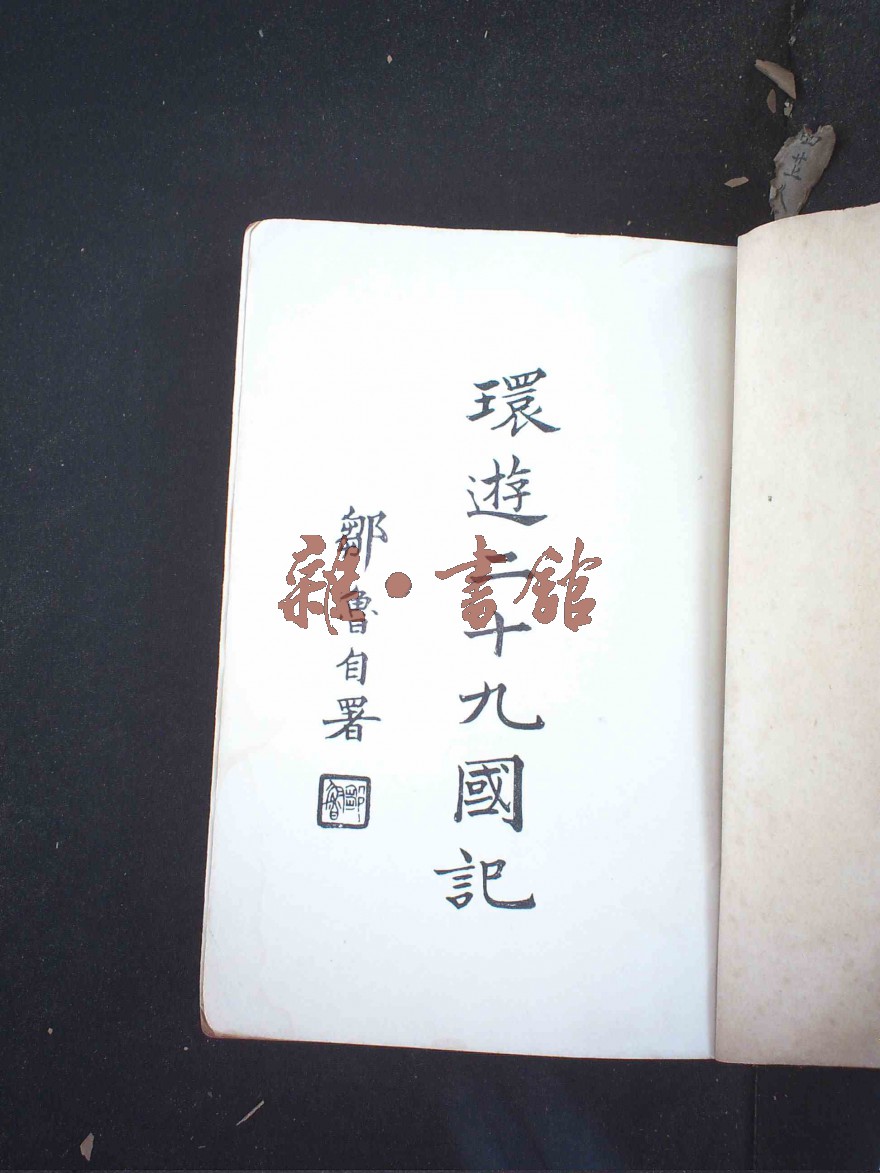 環遊二十九國記
鄒魯自署
鄒魯
雜·書館